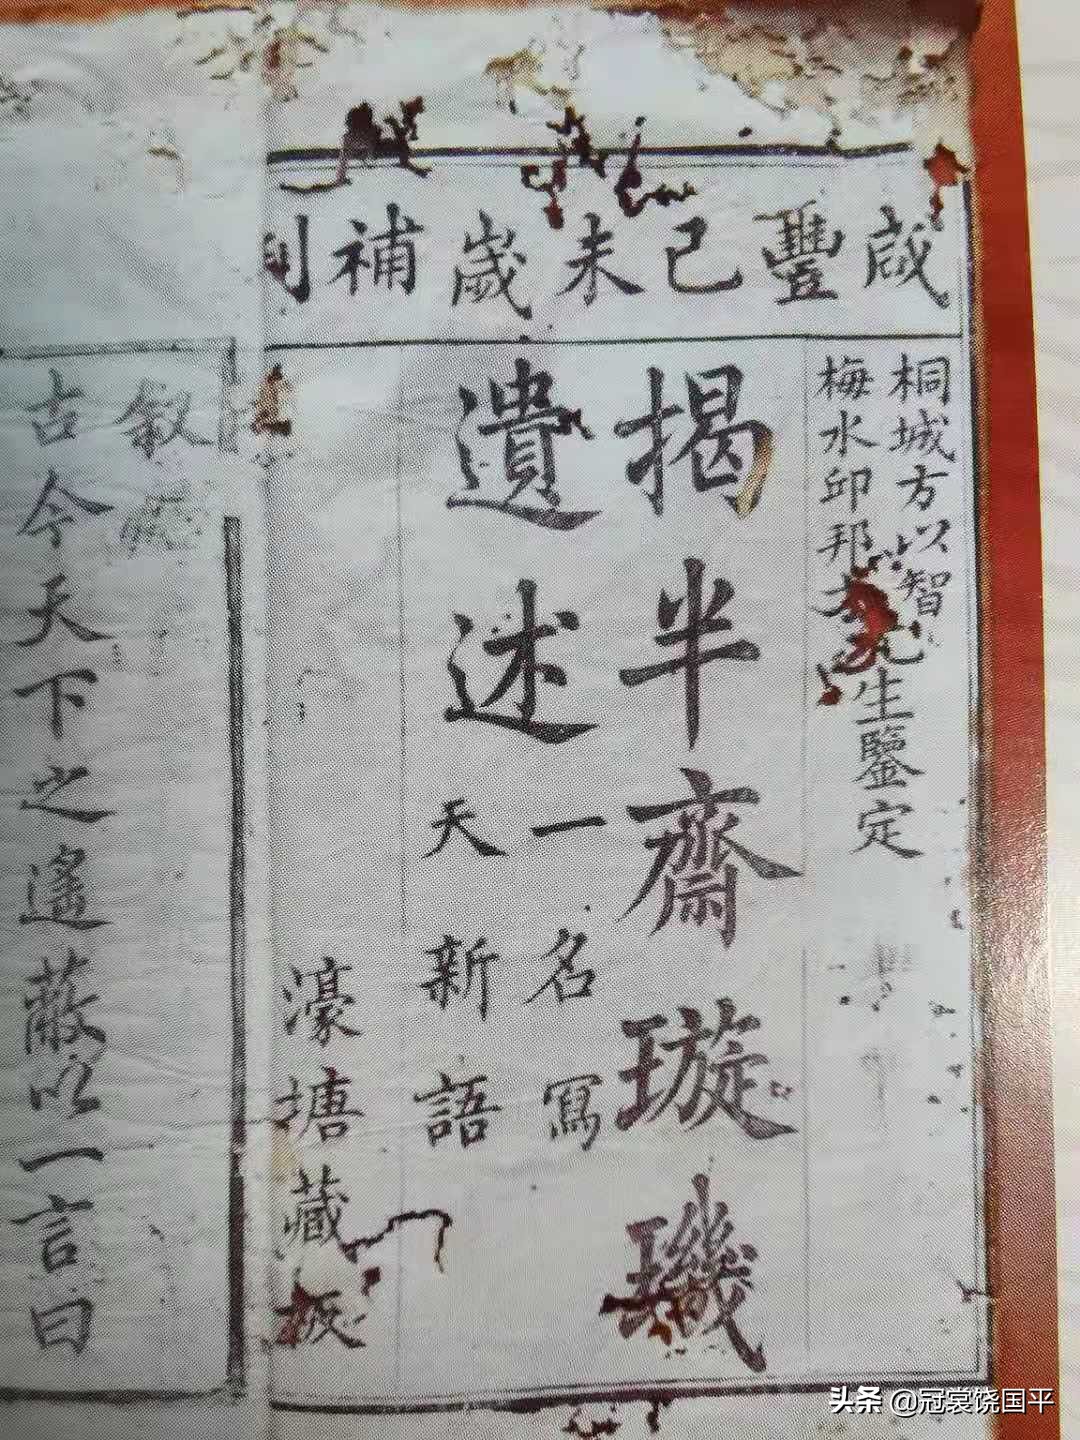 咸豐己未歲補刊
桐城方以智
梅水邱邦士
先生鑒定
揭半齋璇璣
遺述
一名寫
天新語
濠塘藏板
敘
古今天下之遙蔽以一言曰
头条 @冠裳饶国平